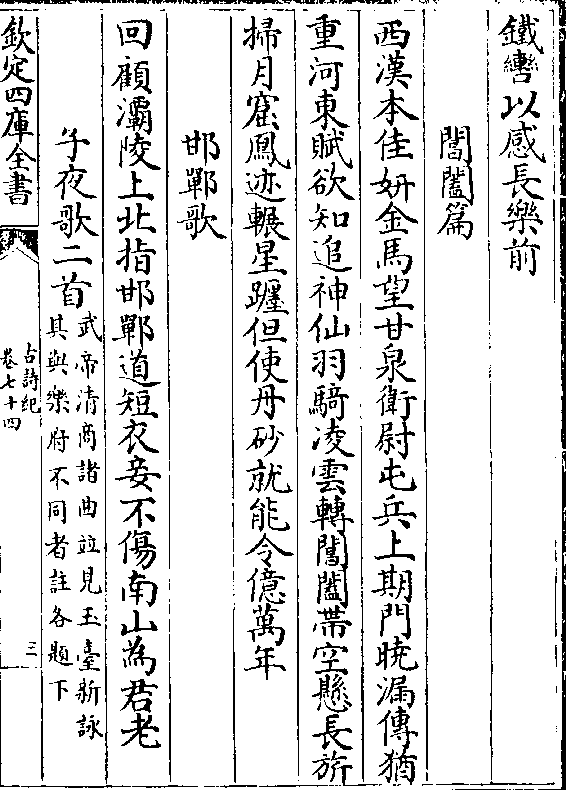 鐵轡以感長樂前
閶闔篇
西漢本佳妍金馬望甘泉衛尉屯兵上期門曉漏傳猶
重河東賦欲知追神仙羽騎凌雲轉閶闔帶空懸長旂
掃月窟鳳迹輾星躔但使丹砂就能令億萬年
邯鄲歌
回顧灞陵上北指邯鄲道短衣妾不傷南山為君老
子夜歌二首武帝清商諸曲竝見玉臺新詠
其與樂府不同者註各題下
欽定四庫全書
古詩紀
卷七十四
三